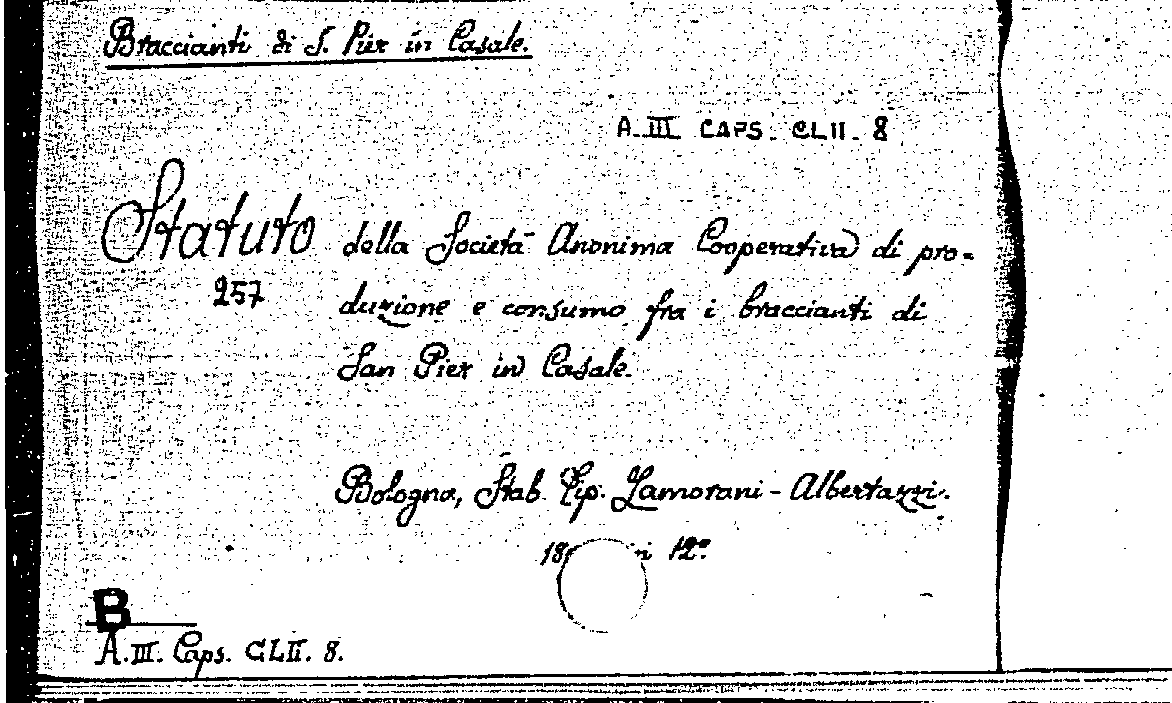 Braccianti di S. Pier in Casale.
A. III CAPS. CLII. 8
Statuto della Società Anonima Cooperativa di pro-
257
duzione e consumo fra i braccianti di
San Pier in Casale.
Bologna, Stab. Tip. Zamorani - Albertazzi.
12°
B
A. III. Caps. CLII. 8.